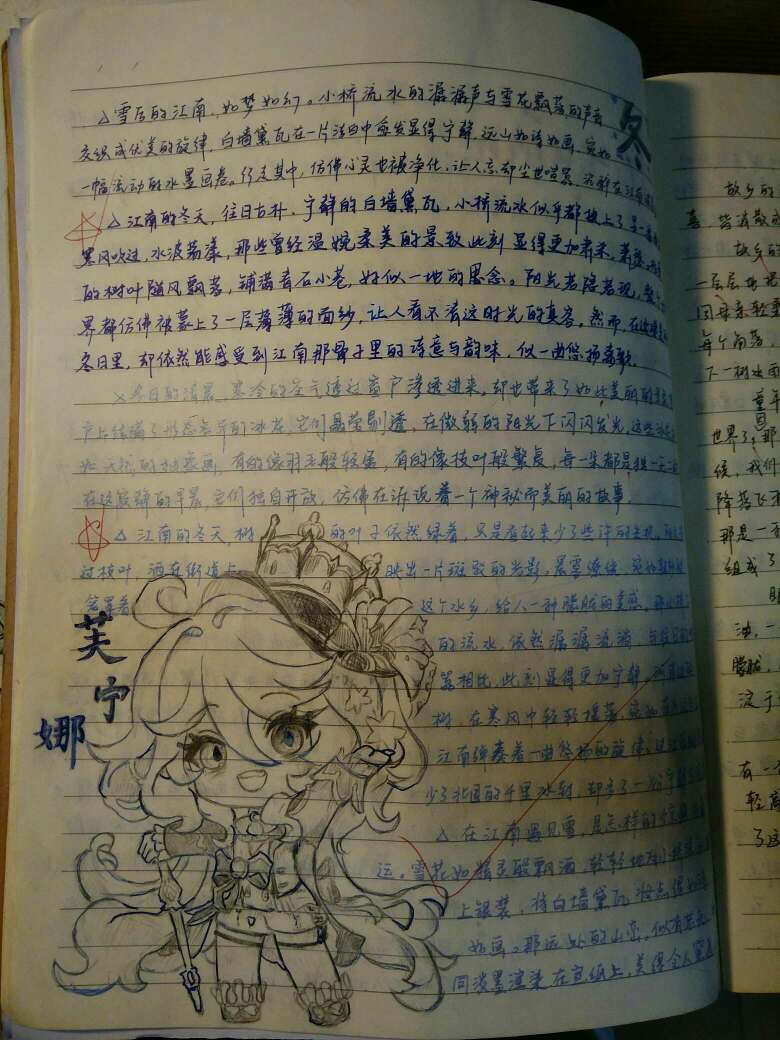 冬
△雪后的江南,如梦如幻。小桥流水的潺潺声与雪花飘落的声音
交织成优美的旋律,白墙黛瓦在一片洁白中愈发显得宁静,远山如诗如画,宛如
一幅流动的水墨画卷。行走其中,仿佛心灵也被净化,让人忘却尘世喧嚣,沉醉在江南
△江南的冬天,往日古朴、宁静的白墙黛瓦,小桥流水似乎都披上了
寒风吹过,水波荡漾,那些曾经温婉柔美的景致此刻显得更加
的树叶随风飘落,铺满青石小巷,好似一地的思念。阳光若隐若现,整个
界都仿佛被蒙上了一层薄薄的面纱,让人看不清这时光的真容。然而,在这
冬日里,却依然能感受到江南那骨子里的诗意与韵味,似一曲悠扬离歌。
冬日的清晨,寒冷的空气透过窗户渗透进来,却也带来了如此美丽的
户上结满了形态各异的冰花,它们晶莹剔透,在微弱的阳光下闪闪发光,这些
的抽象画,有的像羽毛般轻盈,有的像枝叶般繁复,每一朵都是独一无二
在这寂静的早晨,它们独自开放,仿佛在诉说着一个神秘而美丽的故事。
△江南的冬天 树的叶子依然绿着,只是看起来少了些许的生机,阳光
过枝叶,洒在街道上 映出一片斑驳的光影,晨雾缭绕,宛如
笼罩着 这个水乡,给人一种朦胧的美感。
的流水,依然潺潺流淌,与往日的
相比,此刻显得更加宁静。
树,在寒风中轻轻摇落,宛如在
江南弹奏着一曲悠扬的旋律。
少了北国的千里冰封,却多了一份宁静
△在江南遇见雪,是怎样的
运。雪花如精灵般飘洒,轻轻地
上银装,将白墙黛瓦妆点得如诗
如画。那远处的山峦,似有若无
同淡墨渲染在宣纸上,美得令人窒息
芙
宁
娜
故乡的
故乡的
一层层地
每个角落,
下一树冰
童年
世界了,那
候,我们
降落飞
那是一
组成了
油,一
朦胧,
淀于
有一
轻
了这